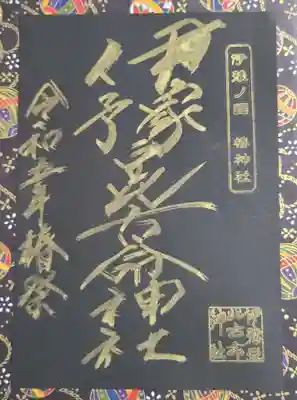 伊豫ノ國 椿神社
伊豫豆比古命神社
令和五年椿祭